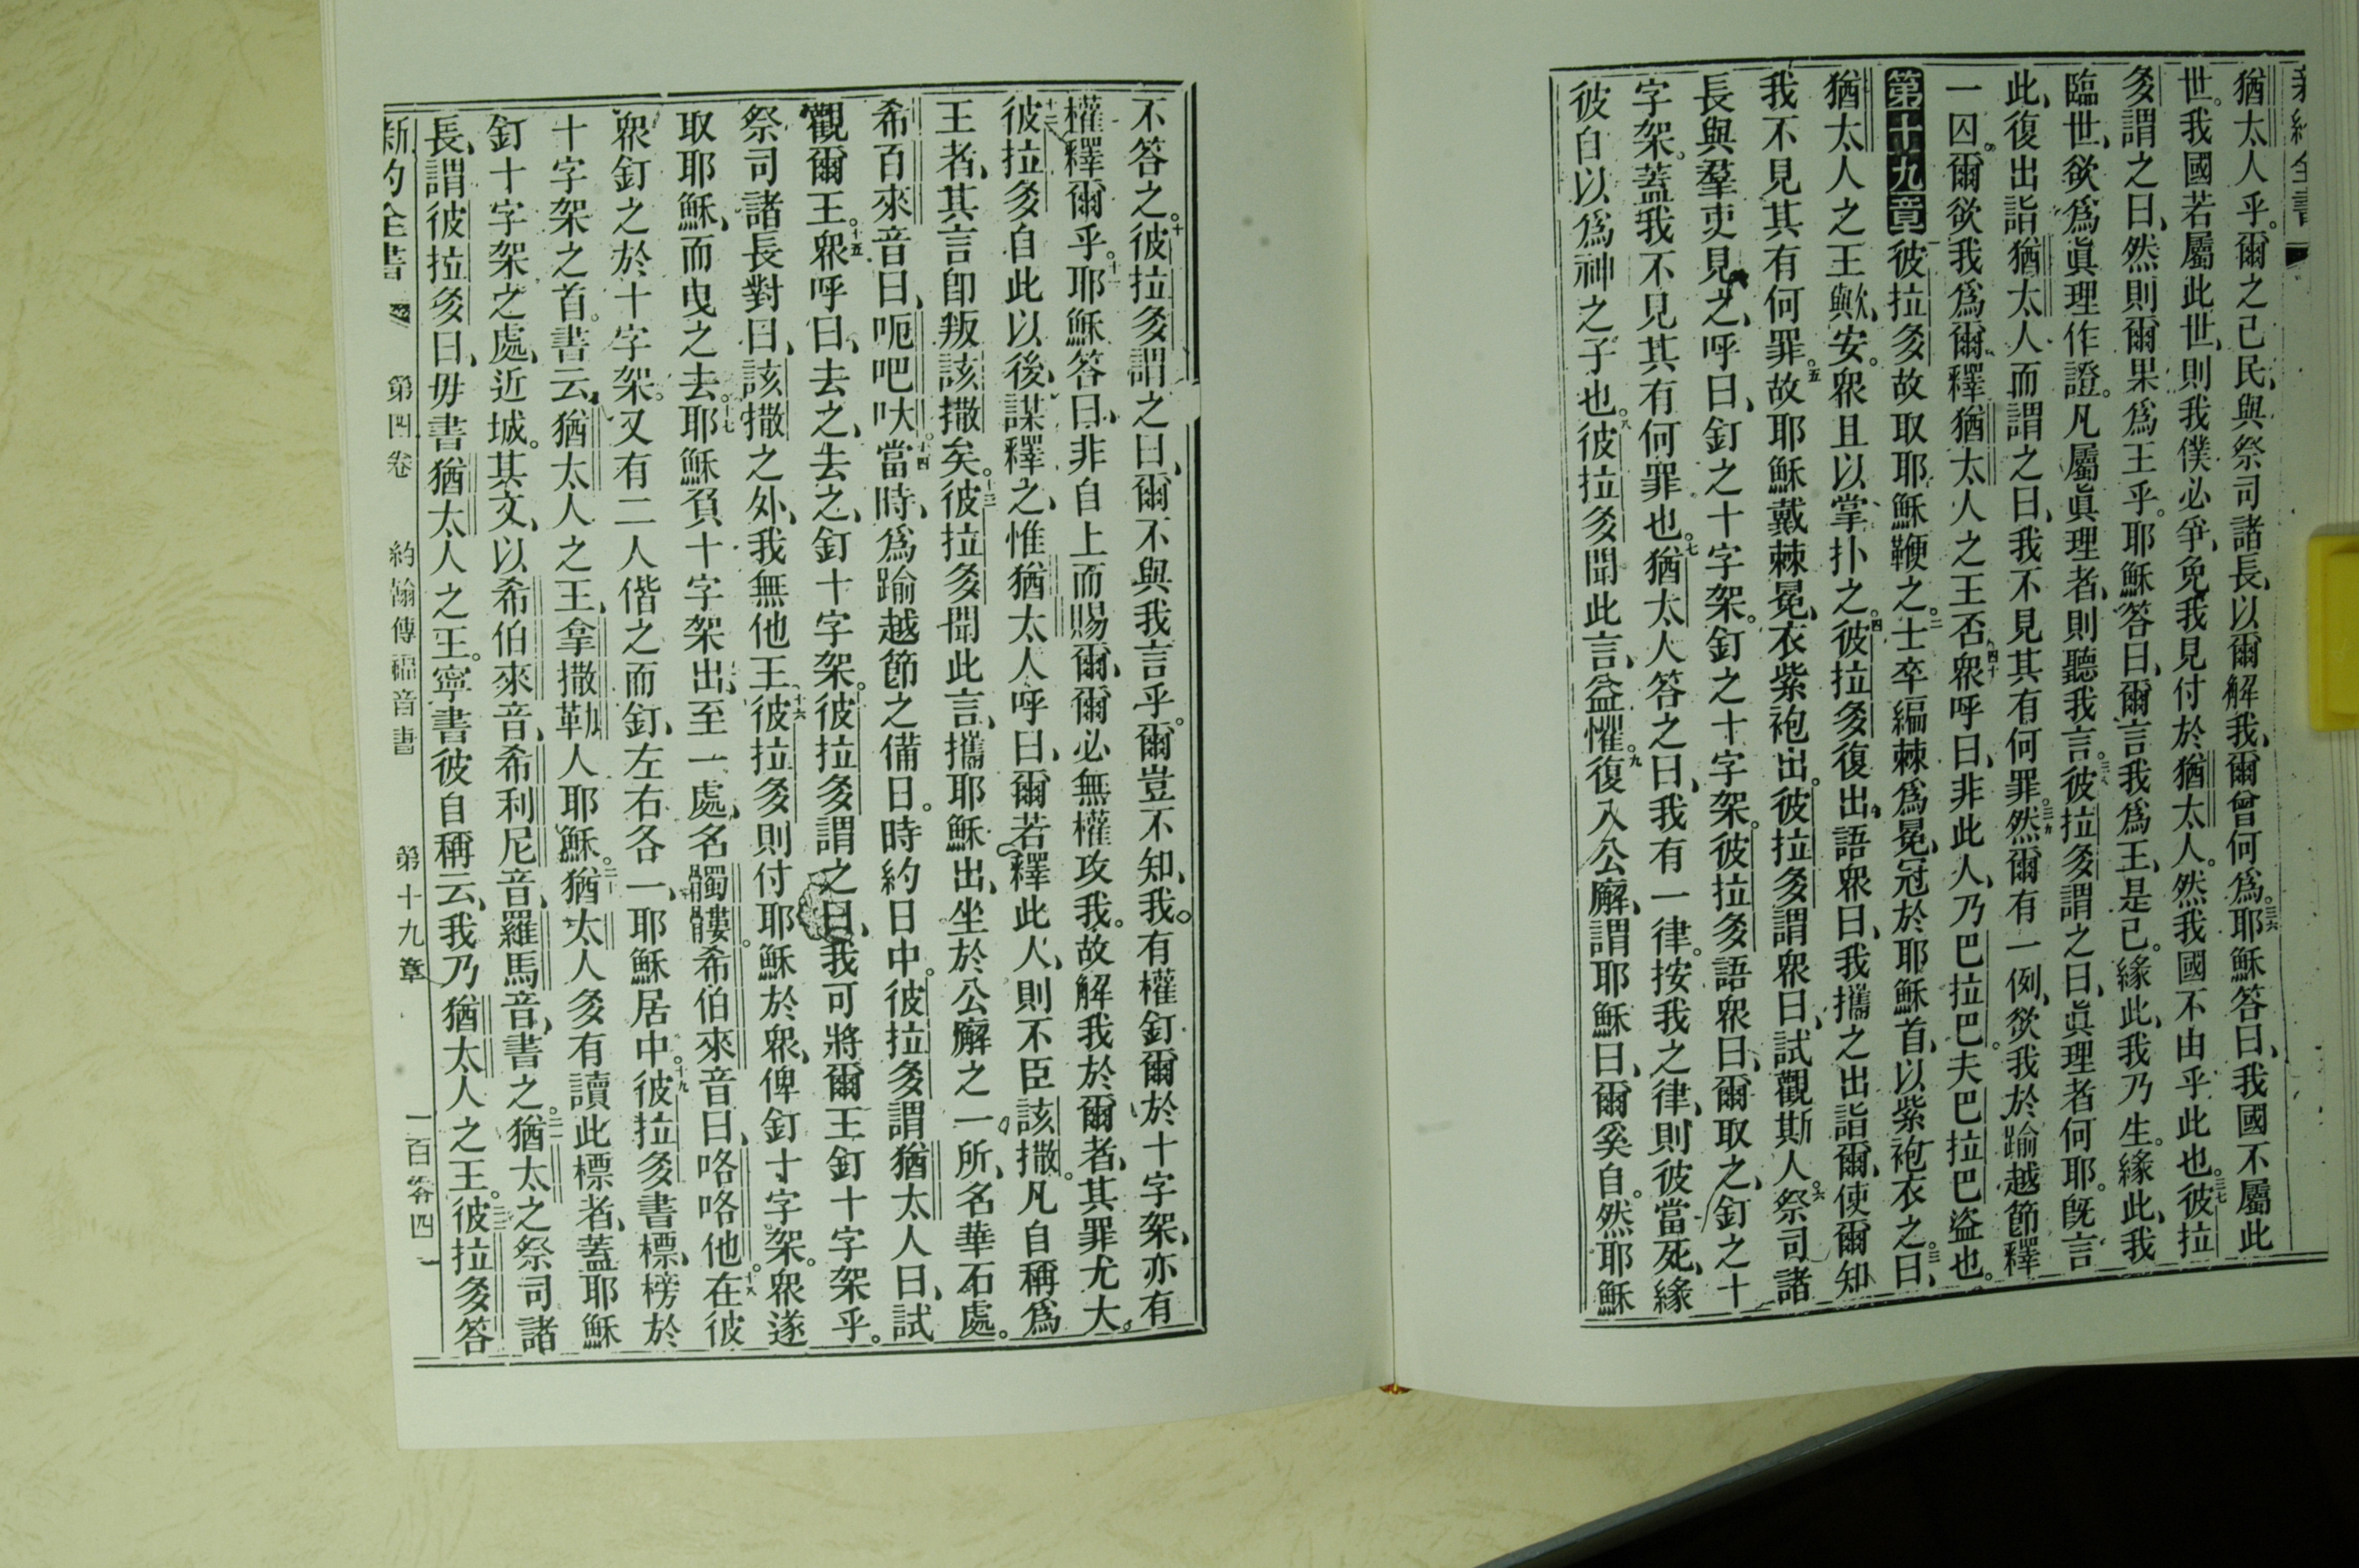 新約全書
猶太人乎。爾之己民、與祭司諸長、以爾解我、爾曾何爲。三六耶穌答曰、我國不屬此
世。我國若屬此世、則我僕必爭、免我見付於猶太人。然我國不由乎此也。三七彼拉
多謂之曰、然則爾果爲王乎。耶穌答曰、爾言我爲王、是已。緣此、我乃生。緣此、我
臨世、欲爲眞理作證。凡屬眞理者、則聽我言。三八彼拉多謂之曰、眞理者何耶。旣言
此、復出詣猶太人而謂之曰、我不見其有何罪。三九然爾有一例、欲我於踰越節釋
一囚。爾欲我爲爾釋猶太人之王否。四十衆呼曰、非此人、乃巴拉巴。夫巴拉巴盜也。
第十九章一彼拉多故取耶穌鞭之。二士卒編棘爲冕、冠於耶穌首、以紫袍衣之。三曰、
猶太人之王歟、安。衆且以掌扑之。四彼拉多復出、語衆曰、我攜之出詣爾、使爾知
我不見其有何罪。五故耶穌戴棘冕、衣紫袍出。彼拉多謂衆曰、試觀斯人。六祭司諸
長與羣吏見之、呼曰、釘之十字架。釘之十字架。彼拉多語衆曰、爾取之、釘之十
字架。蓋我不見其有何罪也。七猶太人答之曰、我有一律。按我之律、則彼當死、緣
彼自以爲神之子也。八彼拉多聞此言、益懼。九復入公廨、謂耶穌曰、爾奚自。然耶穌
不答之。十彼拉多謂之曰、爾不與我言乎。爾豈不知、我有權釘爾於十字架、亦有
權釋爾乎。十一耶穌答曰、非自上而賜爾、爾必無權攻我。故解我於爾者、其罪尤大。
十二彼拉多自此以後、謀釋之、惟猶太人呼曰、爾若釋此人、則不臣該撒。凡自稱爲
王者、其言卽叛該撒矣。十三彼拉多聞此言、攜耶穌出、坐於公廨之一所、名華石處。
希百來音曰、呃吧吠。十四當時、爲踰越節之備日。時約日中。彼拉多謂猶太人曰、試
觀爾王。十五衆呼曰、去之、去之、釘十字架。彼拉多謂之曰、我可將爾王釘十字架乎。
祭司諸長對曰、該撒之外、我無他王。十六彼拉多則付耶穌於衆、俾釘十字架。衆遂
取耶穌、而曳之去。十七耶穌負十字架出、至一處、名髑髏。希伯來音曰、咯咯他。十八在彼
衆釘之於十字架。又有二人偕之而釘、左右各一、耶穌居中。十九彼拉多書標、榜於
十字架之首。書云、猶太人之王、拿撒勒人耶穌。二十猶太人多有讀此標者、蓋耶穌
釘十字架之處、近城。其文、以希伯來音、希利尼音、羅馬音、書之。二一猶太之祭司諸
長、謂彼拉多曰、毋書猶太人之王。寧書彼自稱云、我乃猶太人之王。二二彼拉多答
新約全書 第四卷 約翰傳福音書 第十九章 一百零四